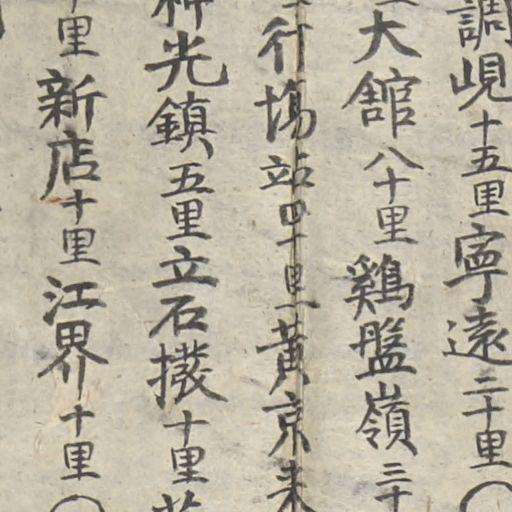 調峴十五里寧遠二十里〇
大館八十里鷄盤嶺三十
行塲站四十里黄京来
神光鎮五里立石撥十里
里新店十里江界十里〇